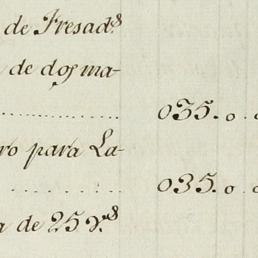 de Fresad.s
de dos ma-
035. o
ro para La-
035. o
a de 25 v.s